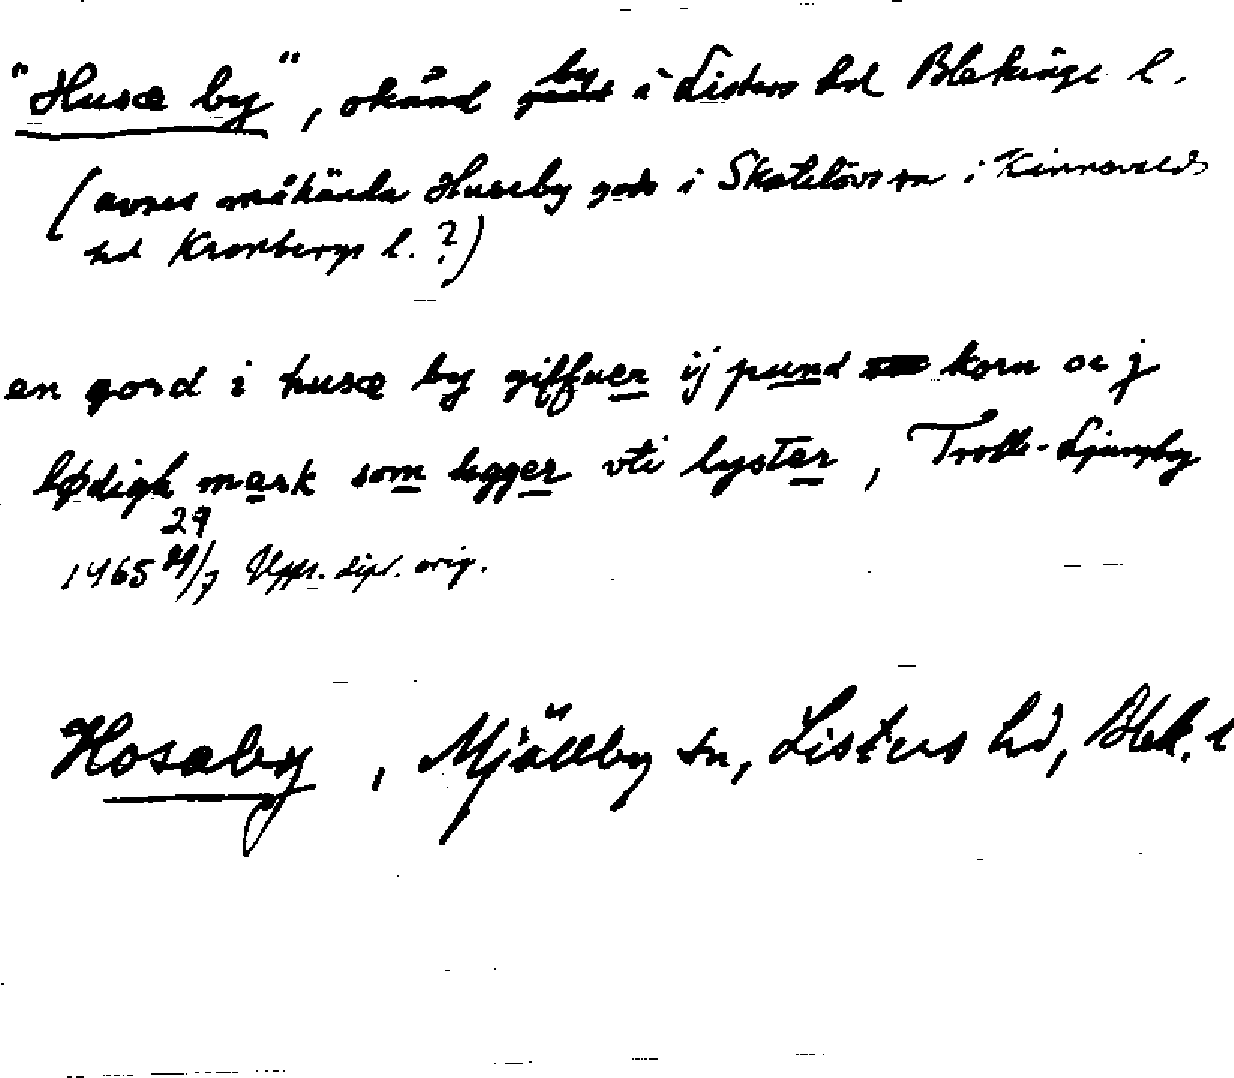 "Husæ by", okänd by i Listers hd Blekinge l.
(avses måhända Huseby gods i Skatelövs sn i Kinnevalds
hd Kronbergs l. ?)
en gord i husæ by giffuer ij pund korn oc j
lødigh mark som legger vti lyster, Trolle-Ljungby
1465 29/7 Upps. dipl. orig.
Hosaby, Mjällby sn, Listers hd, Blek. l